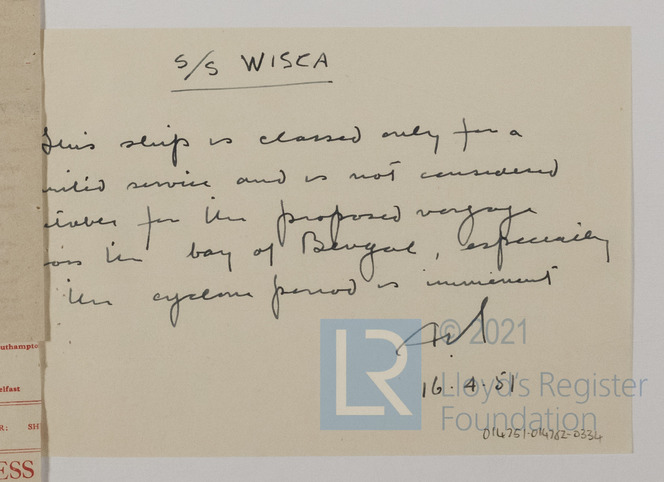 S/S WISCA
This ship is classed only for a
mited service and is not considered
itable for the proposed voyage
oss the bay of Bengal, especially
the cyclone period is imminent
16.4.51
© 2021
LR
Lloyd's Register
Foundation
014751-014762-0334
outhampto
elfast
R: SH
ESS